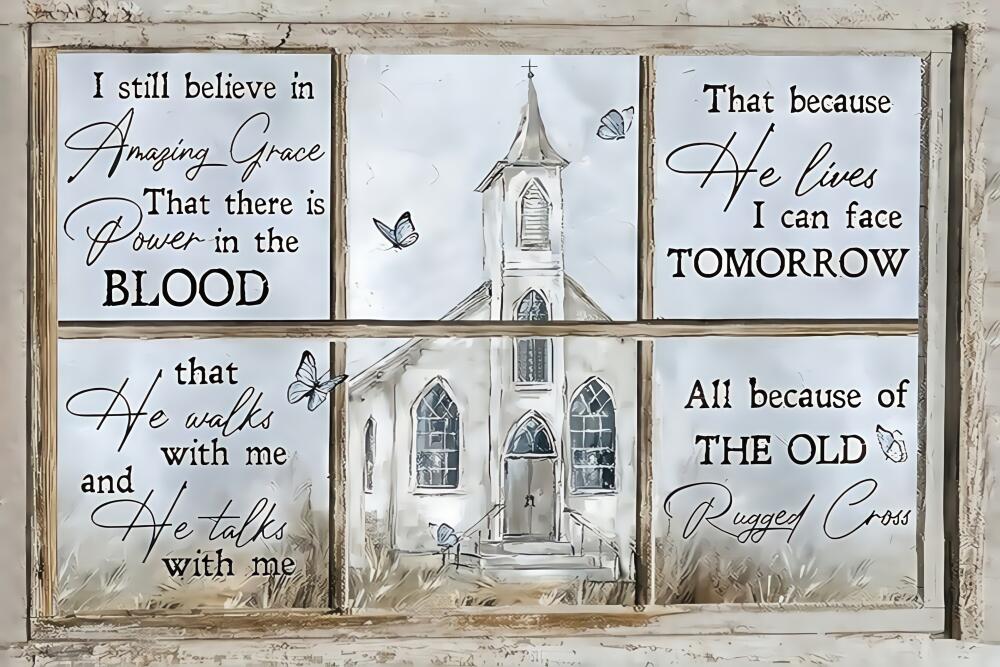 I still believe in
Amazing Grace
That there is
Power in the
BLOOD
that
He walks
with me
and
He talks
with me
That because
He lives
I can face
TOMORROW
All because of
THE OLD
Rugged Cross